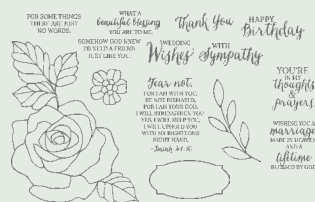 FOR SOME THINGS
THERE ARE JUST
NO WORDS.
WHAT A
beautiful blessing
YOU ARE TO ME.
Thank You
HAPPY
Birthday
SOMEHOW GOD KNEW
I'D NEED A FRIEND
JUST LIKE YOU.
WEDDING
Wishes
WITH
Sympathy
Fear not,
FOR I AM WITH YOU;
BE NOT DISMAYED,
FOR I AM YOUR GOD.
I WILL STRENGTHEN YOU
YES, I WILL HELP YOU,
I WILL UPHOLD YOU
WITH MY RIGHTEOUS
RIGHT HAND.
-Isaiah 41:10
YOU'RE
IN MY
thoughts
&
prayers.
WISHING YOU A
marriage
MADE IN HEAVEN
AND A
lifetime
BLESSED BY GOD